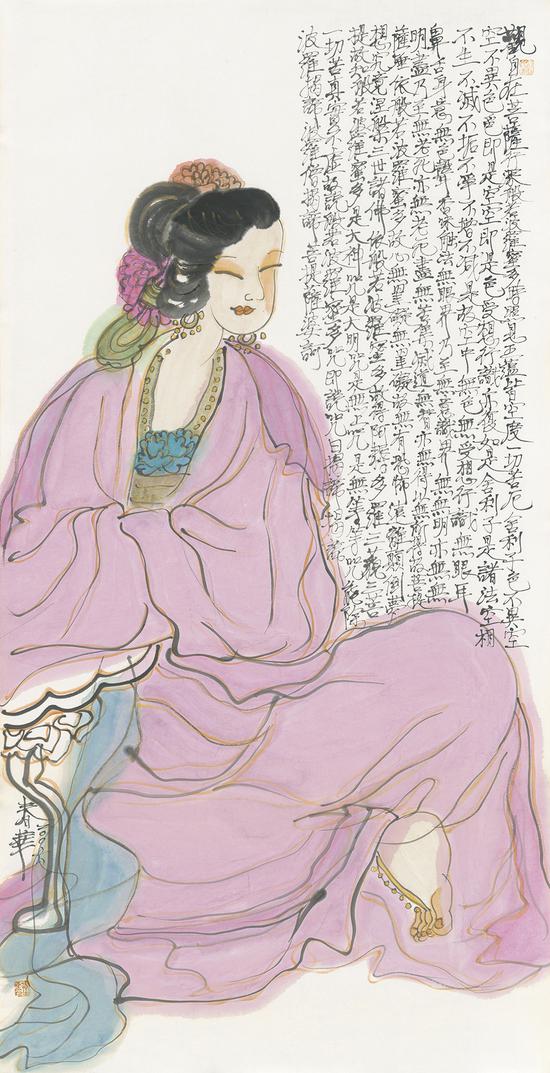 觀自在菩薩行深般若波羅蜜多時照見五蘊皆空度一切苦厄舍利子色不異空
空不異色色即是空空即是色受想行識亦復如是舍利子是諸法空相
不生不滅不垢不淨不增不減是故空中無色無受想行識無眼耳
鼻舌身意無色聲香味觸法無眼界乃至無意識界無無明亦無無
明盡乃至無老死亦無老死盡無苦集滅道無智亦無得以無所得故菩提
薩埵依般若波羅蜜多故心無罣礙無罣礙故無有恐怖遠離顛倒夢
想究竟涅槃三世諸佛依般若波羅蜜多故得阿耨多羅三藐三菩
提故知般若波羅蜜多是大神咒是大明咒是無上咒是無等等咒能除
一切苦真實不虛故說般若波羅蜜多咒即說咒曰揭諦揭諦
波羅揭諦波羅僧揭諦菩提薩婆訶
春華